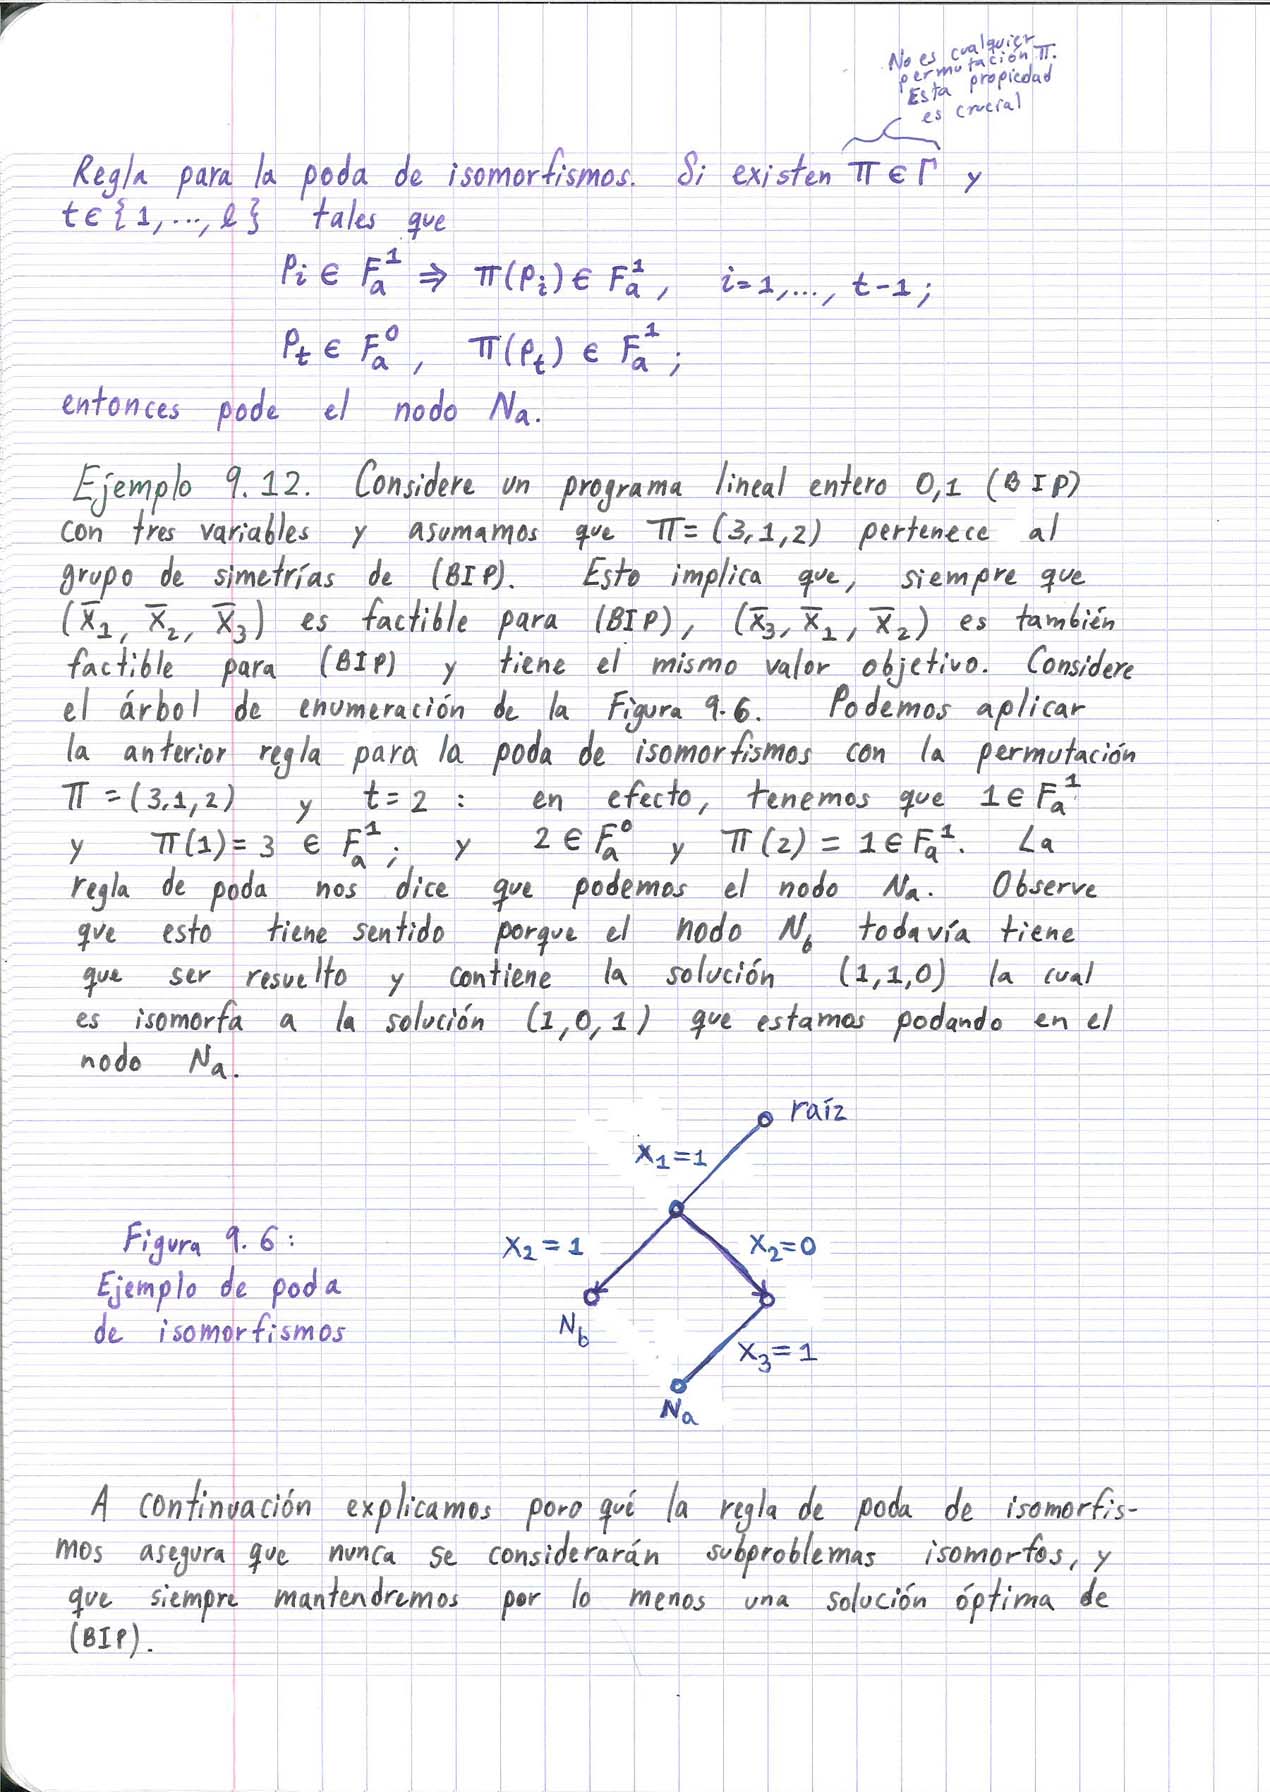 No es cualquier
permutación π.
Esta propiedad
es crucial
Regla para la poda de isomorfismos. Si existen π ∈ Γ y
t ∈ {1, ..., l} tales que
Pi ∈ F_a^1 ⇒ π(Pi) ∈ F_a^1, i=1,..., t-1;
Pt ∈ F_a^0, π(Pt) ∈ F_a^1;
entonces pode el nodo Na.
Ejemplo 9.12. Considere un programa lineal entero 0,1 (BIP)
con tres variables y asumamos que π=(3,1,2) pertenece al
grupo de simetrías de (BIP). Esto implica que, siempre que
(x̄1, x̄2, x̄3) es factible para (BIP), (x̄3, x̄1, x̄2) es también
factible para (BIP) y tiene el mismo valor objetivo. Considere
el árbol de enumeración de la Figura 9.6. Podemos aplicar
la anterior regla para la poda de isomorfismos con la permutación
π=(3,1,2) y t=2: en efecto, tenemos que 1 ∈ F_a^1
y π(1)=3 ∈ F_a^1; y 2 ∈ F_a^0 y π(2)=1 ∈ F_a^1. La
regla de poda nos dice que podemos el nodo Na. Observe
que esto tiene sentido porque el nodo Nb todavía tiene
que ser resuelto y contiene la solución (1,1,0) la cual
es isomorfa a la solución (1,0,1) que estamos podando en el
nodo Na.
raíz
x1=1
x2=1
x2=0
Nb
x3=1
Na
Figura 9.6:
Ejemplo de poda
de isomorfismos
A continuación explicamos poro qué la regla de poda de isomorfis-
mos asegura que nunca se considerarán subproblemas isomorfos, y
que siempre mantendremos por lo menos una solución óptima de
(BIP).